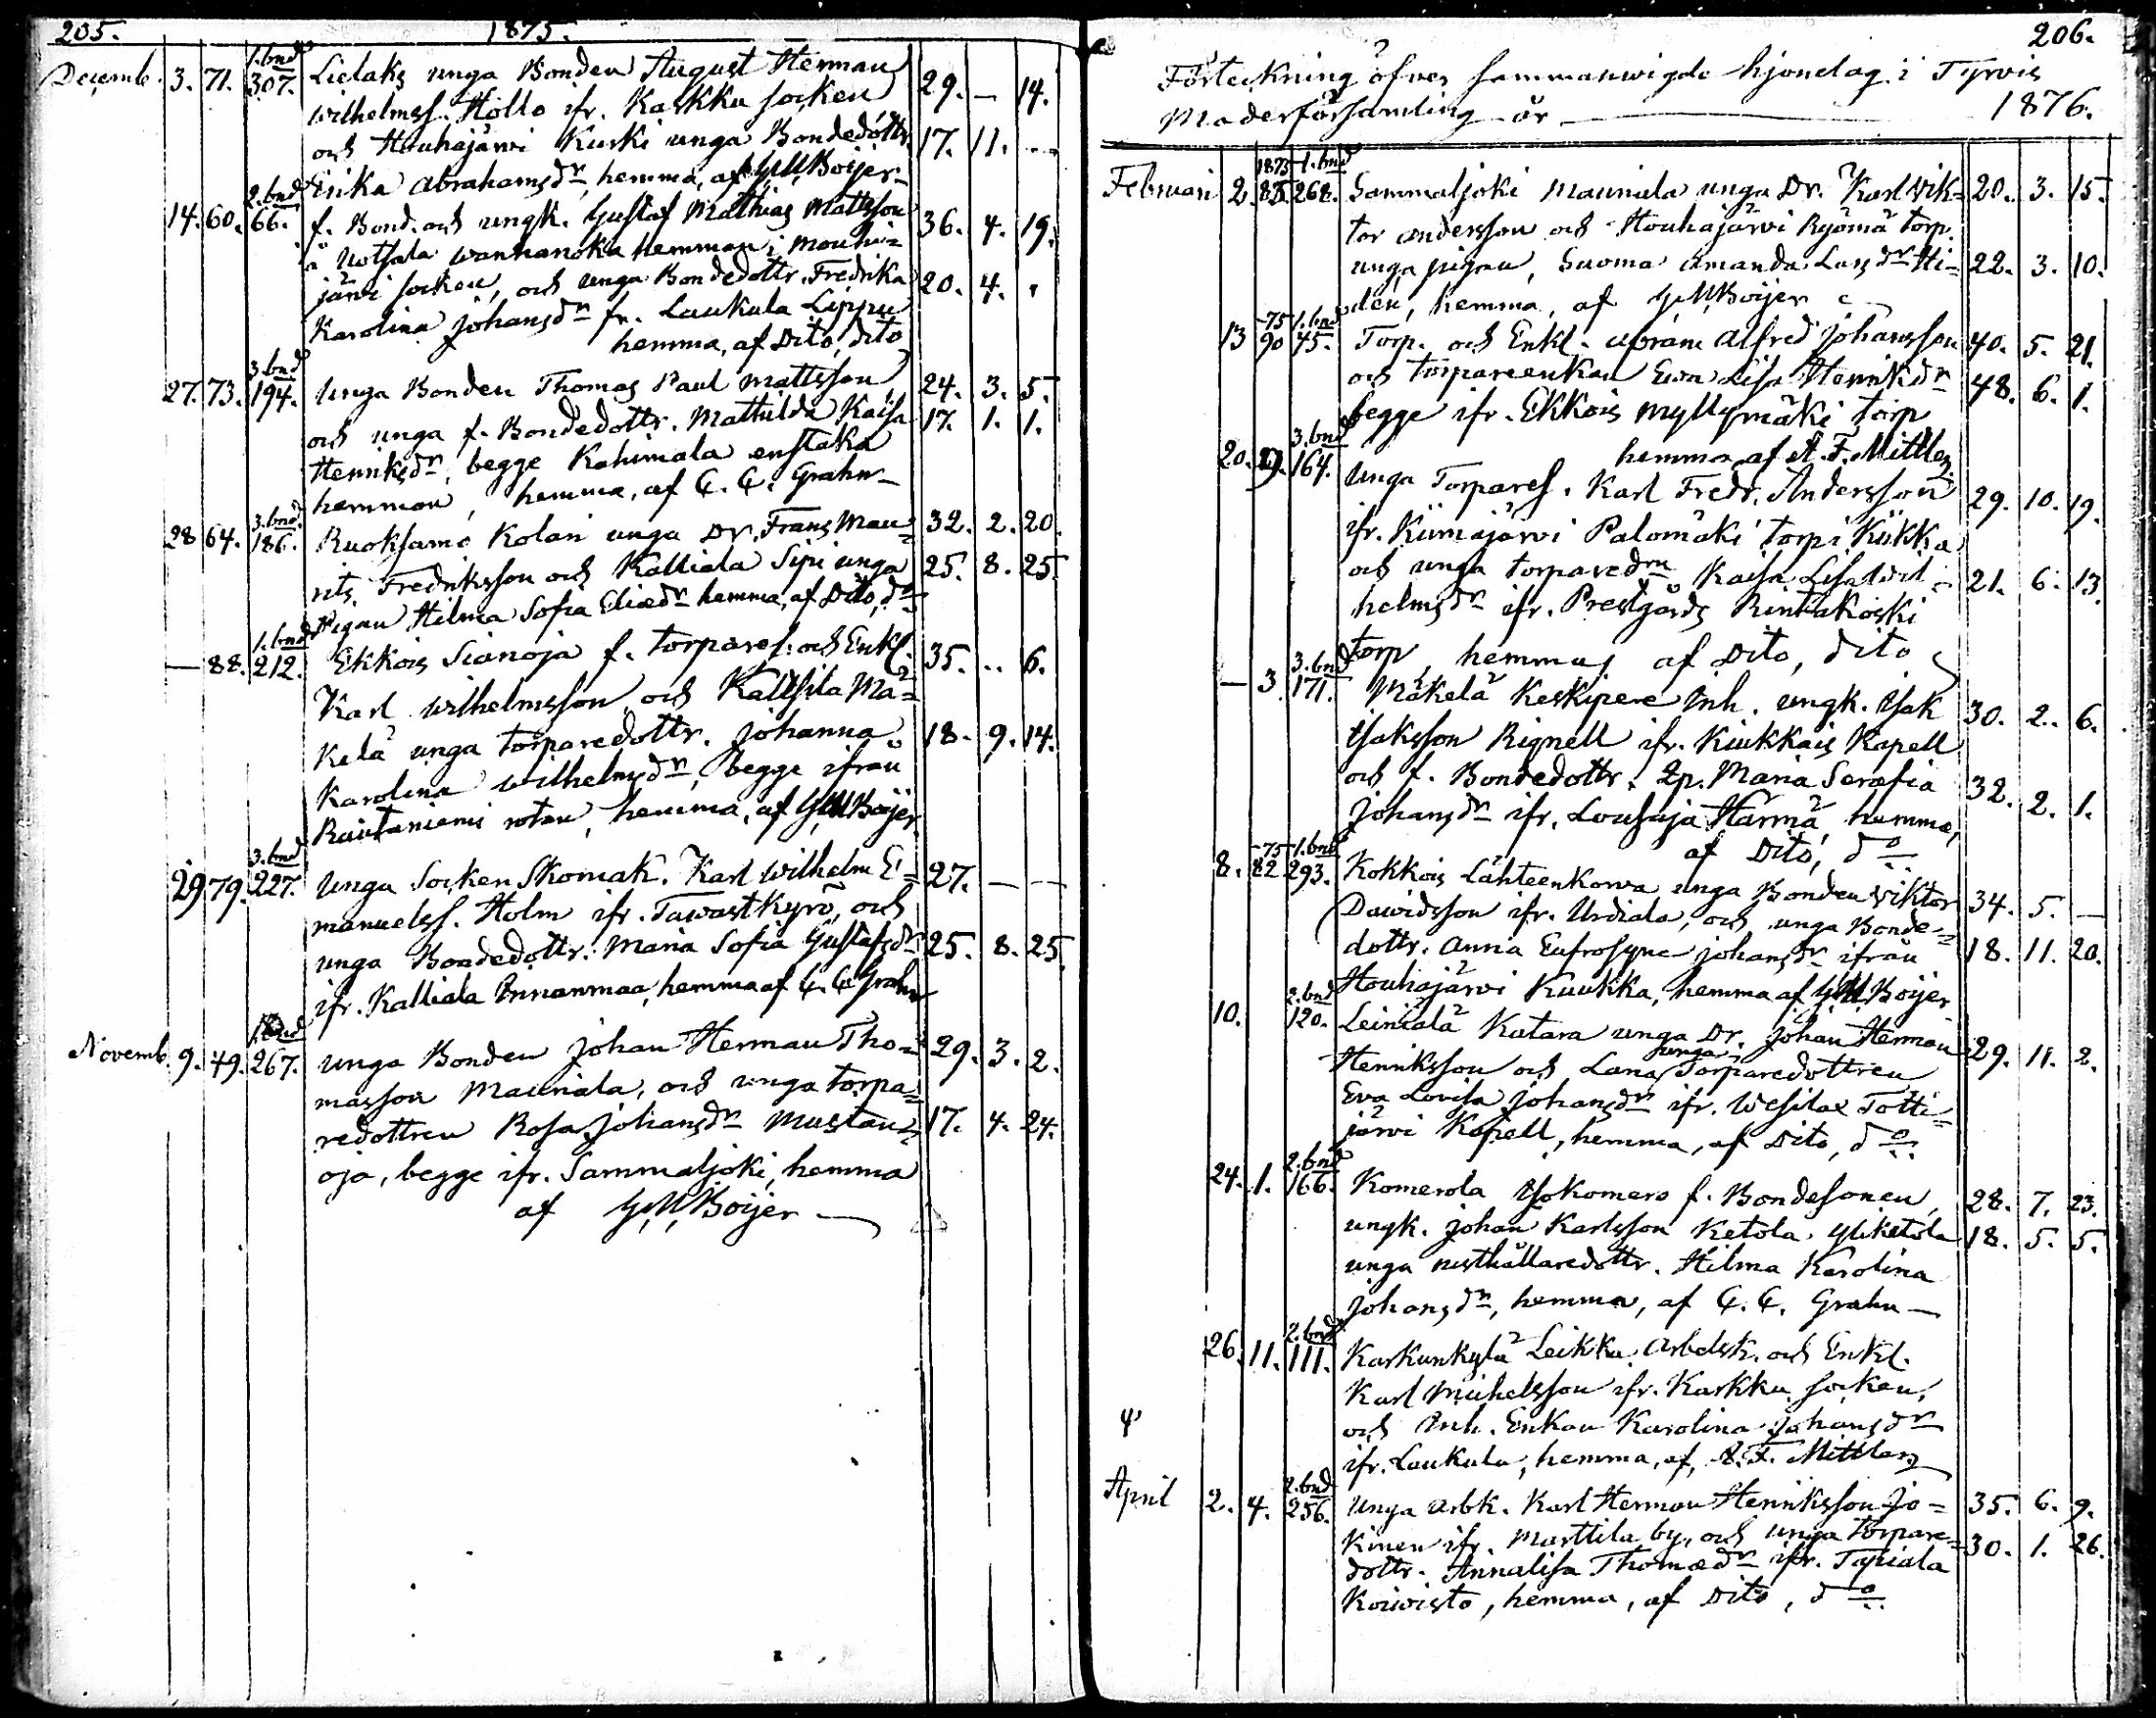 205. 1875.
Decemb. 3. 71. 1.bnd 307. Lielaks unga Bonden August Herman 29. — 14.
wilhelmss. Hollo ifr. Karkku socken
och Houhajärvi Kuski unga Bondedottr 17. 11. --
Erika Abrahamsdr, hemma, af GM Boijer
14. 60. 2.bnd 66. f. Bond. och ungk. Gustaf Mathias Mattsson 36. 4. 19.
å Uotsala wanhanoka hemman i Mouhi=
järvi socken, och unga Bondedottr. Fredrika 20. 4. "
Karolina Johansdr fr. Laukula Lippu
hemma, af Dito, dito
27. 73. 3.bnd 194. Unga Bonden Thomas Paul Mattsson 24. 3. 5.
och unga f. Bondedottr. Mathilda Kaisa 17. 1. 1.
Henriksdr, begge Kahimala enstaka
hemman, hemma, af C. C. Grahn
28 64. 3.bnd 186. Ruoksamo Kolari unga Dr. Frans Mau= 32. 2. 20.
rits Fredriksson och Kalliala Sipi unga 25. 8. 25.
Pigan Hilma Sofia Eliædr hemma, af Dito, do
— 88. 1.bnd 212. Ekkois Sianoja f. torpares. och Enkl. 35. .. 6.
Karl Wilhelmsson och Kallsila Mä=
kelä unga torparedottr. Johanna 18. 9. 14.
Karolina Wilhelmsdr, begge ifrån
Rautaniemi rotan, hemma, af GM Boijer
29 79. 3.bnd 227. Unga Socken Skomak. Karl Wilhelm E= 27. — —
manuelss. Holm ifr. Tawastkyrö, och
unga Bondedottr. Maria Sofia Gustafsdr 25. 8. 25.
ifr. Kalliala Annanmaa, hemma af C. C. Grahn
Novemb. 9. 49. 1.bnd 267. Unga Bonden Johan Herman Tho= 29. 3. 2.
masson Mauriala, och unga torpa=
redottren Rosa Johansdr Mustan= 17. 4. 24.
oja, begge ifr. Sammaljoki, hemma
af GM Boijer
206.
Förteckning öfver sammanwigde hjonelag i Tyrvis
Moderförsamling år — 1876.
Februari 2. 1875 85. 1.bnd 268. Sammaljoki Mauriala unga Dr. Karl Vik= 20. 3. 15.
tor Andersson och Houhajärvi Ryömä torp.
unga pigan, Suoma Amanda Larsdr Hi= 22. 3. 10.
den, hemma, af GM Boijer
13 -75 90 1.bnd 45. Torp. och Enkl. Abram Alfred Johansson 40. 5. 21.
och torpareenkan Ewa Lisa Henriksdr 48. 6. 1.
begge ifr. Ekkois Myllymäki torp
hemma af A. F. Mittler
20. 29. 3.bnd 164. Unga Torpares. Karl Fredr. Andersson 29. 10. 19.
ifr. Kiimajärvi Palomäki torp i Kiikka
och unga torparedrn Kaisa Lisa Wil= 21. 6. 13.
helmsdr ifr. Prestgårds Rintakoski
torp, hemma, af Dito, dito
— 3 3.bnd 171. Mäkelä Keskipere Inh. ungk. Isak 30. 2. 6.
Isaksson Rignell ifr. Kiukkais Kapell
och f. Bondedottr. Qp. Maria Serafia 32. 2. 1.
Johansdr ifr. Lousaja Härmä, hemma,
af Dito, do
8. -75 82 1.bnd 293. Kokkois Lähteenkorva unga Bonden Viktor 34. 5. —
Dawidsson ifr. Urdiala, och unga Bonde=
dottr. Anna Eufrosyne Johansdr ifrån 18. 11. 20.
Houhajärvi Kuukka, hemma af GM Boijer
10. 2.bnd 120. Leiniälä Katara unga Dr. Johan Herman 29. 11. 2.
Henriksson och Lana unga Torparedottren
Eva Lovisa Johansdr ifr. Wesilax Totti=
järvi Kapell, hemma, af Dito, do
24. 1. 2.bnd 166. Komerola Isokomero f. Bondesonen, 28. 7. 23.
ungk. Johan Karlsson Ketola Yliketola 18. 5. 5.
unga rusthållaredottr. Hilma Karolina
Johansdr, hemma, af C. C. Grahn
26. 11. 2.bnd 111. Karkunkylä Leikku Arbetsk. och Enkl.
Karl Mickelsson ifr. Karkku socken,
och Inh. Enkan Karolina Johansdr
ifr. Laukula, hemma, af A. F. Mittler
April 2. 4. 2.bnd 256. Unga Arbk. Karl Herman Henriksson Jo= 35. 6. 9.
kinen ifr. Marttila by, och unga torpare= 30. 1. 26.
dottr. Annalisa Thomædr ifr. Tapiala
Koiwisto, hemma, af Dito, do